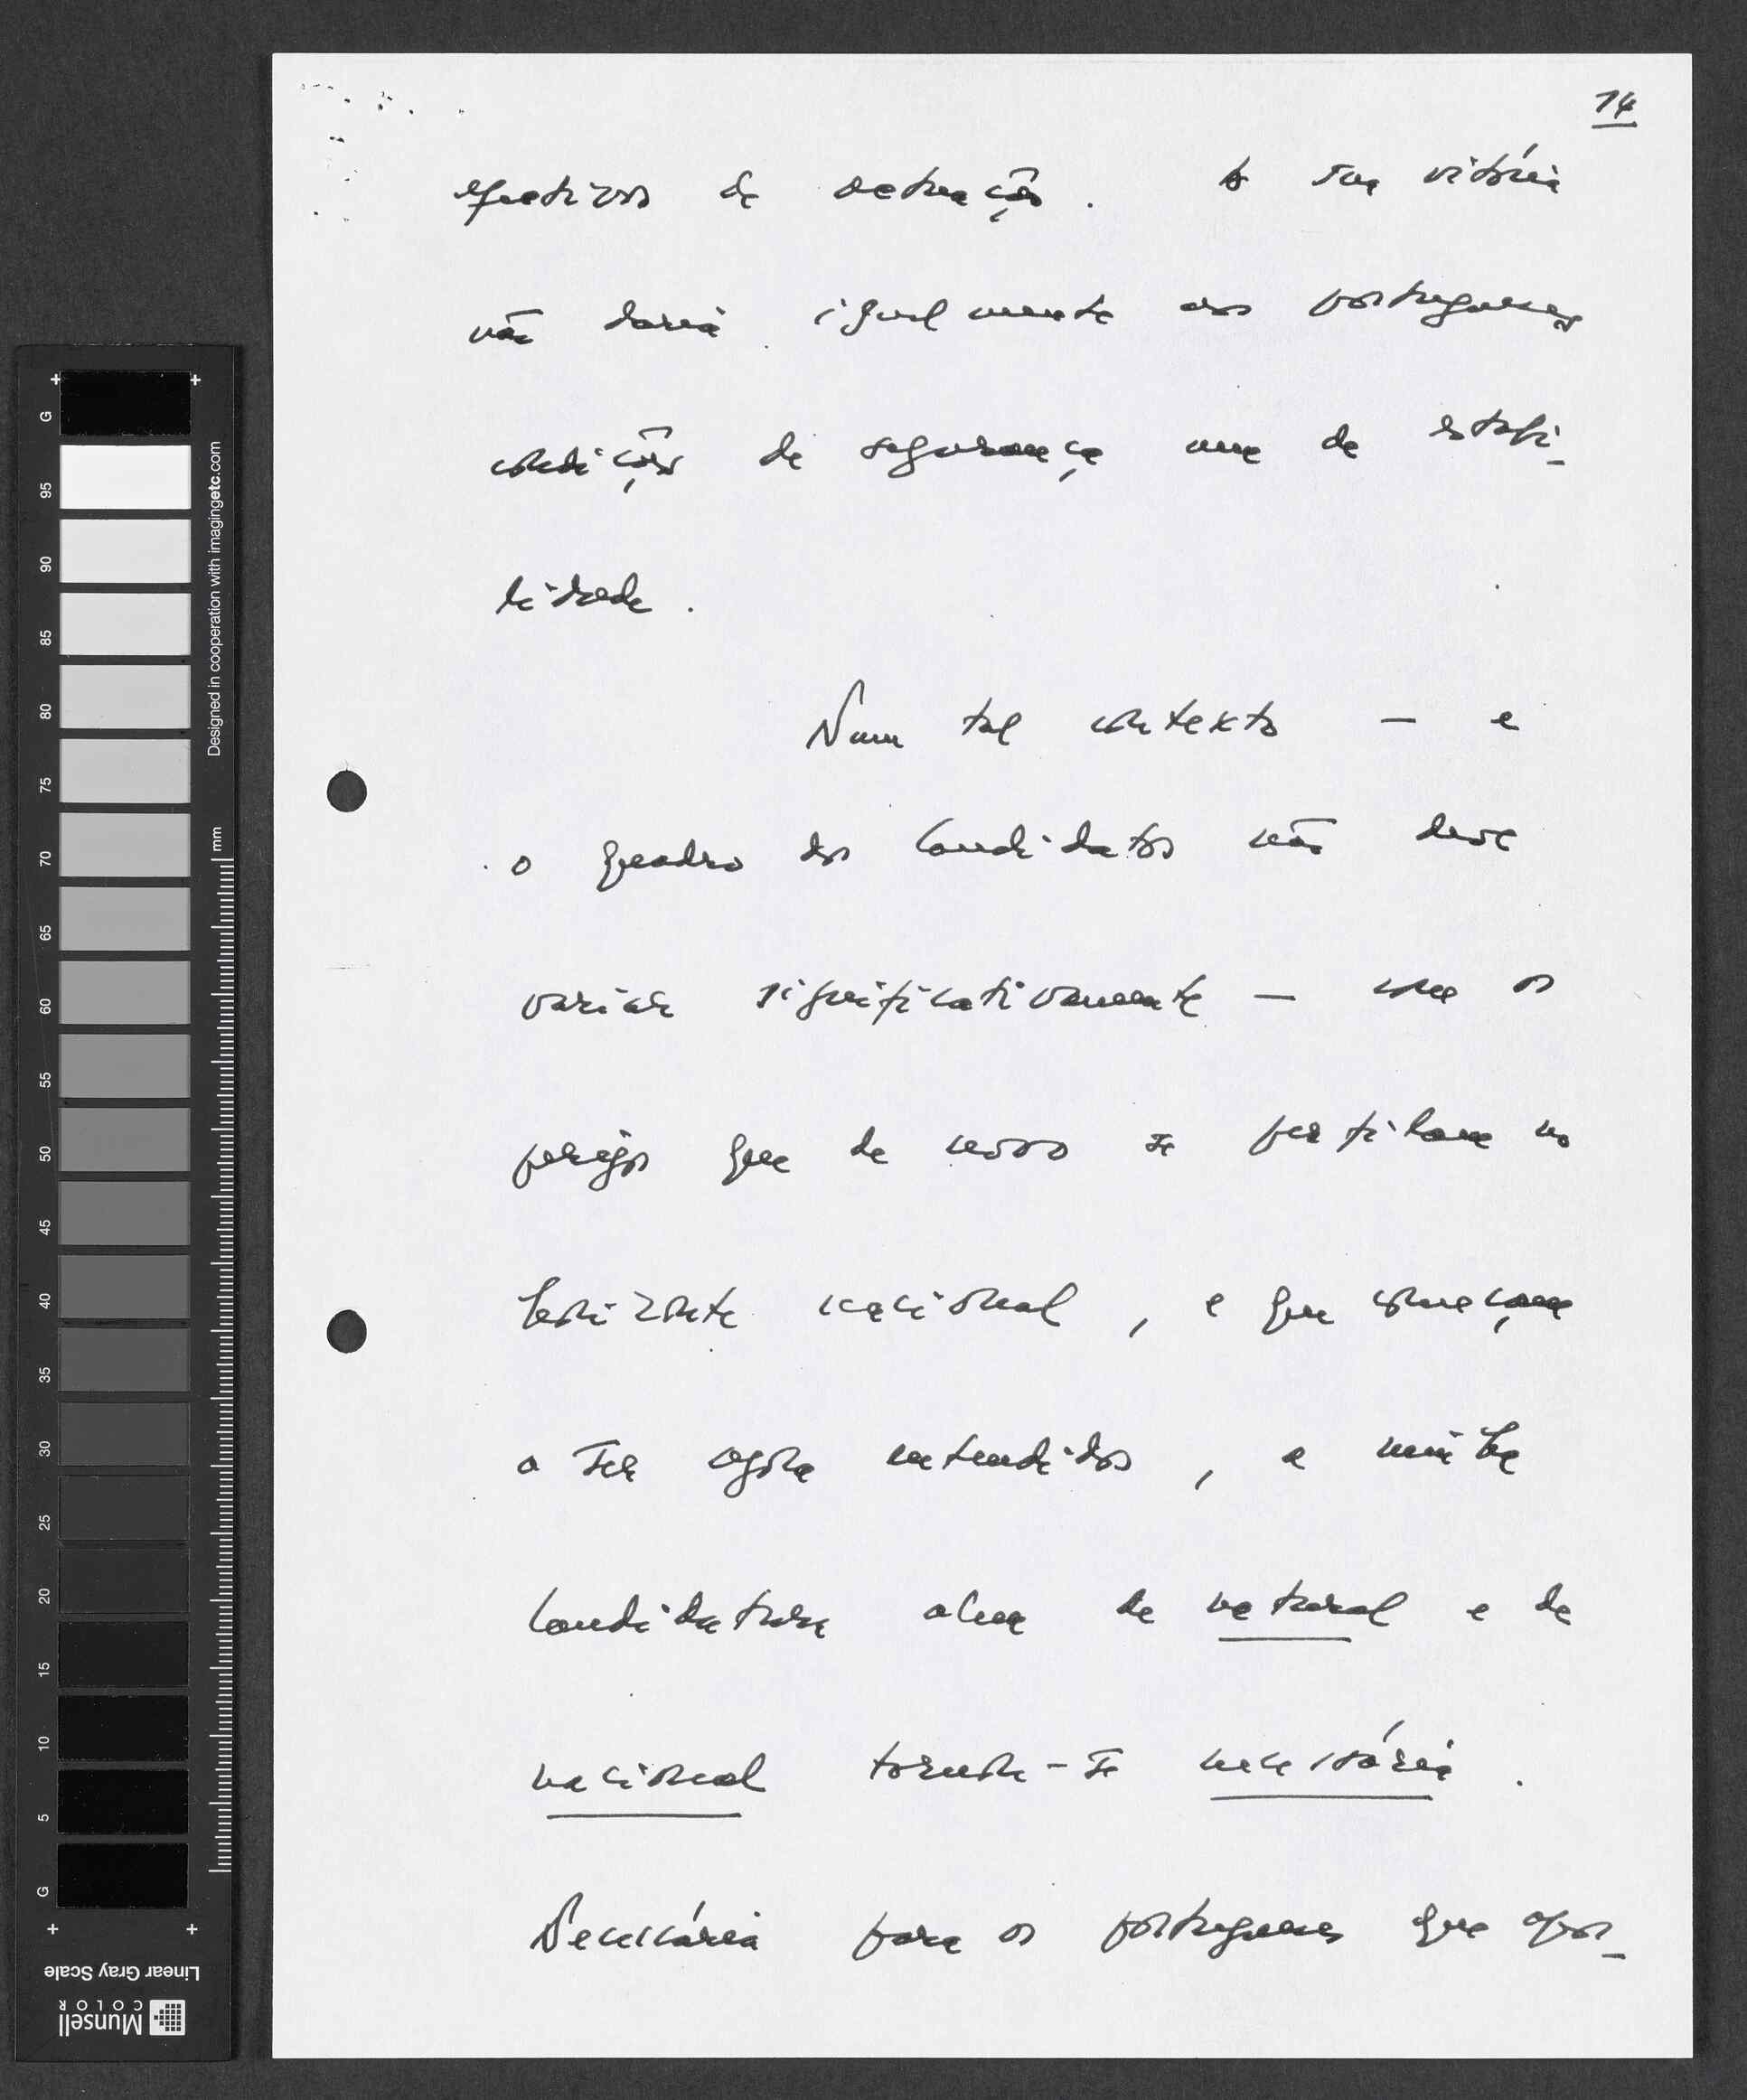 14
efectivos de actuação. A sua vitória
não daria igualmente aos portugueses
condições de segurança nem de estabi-
lidade.
Num tal contexto — e
o quadro dos candidatos não deve
variar significativamente — com os
perigos que de novo se perfilam no
horizonte nacional, e que começam
a ser agora entendidos, a minha
candidatura além de natural e de
nacional tornou-se necessária.
Necessária para os portugueses que apos-
+ +
G
95
90
85
80
75
70
65
60
55
50
45
40
35
30
25
20
15
10
5
G
+ +
Designed in cooperation with imagingetc.com
mm
Linear Gray Scale
Munsell
COLOR